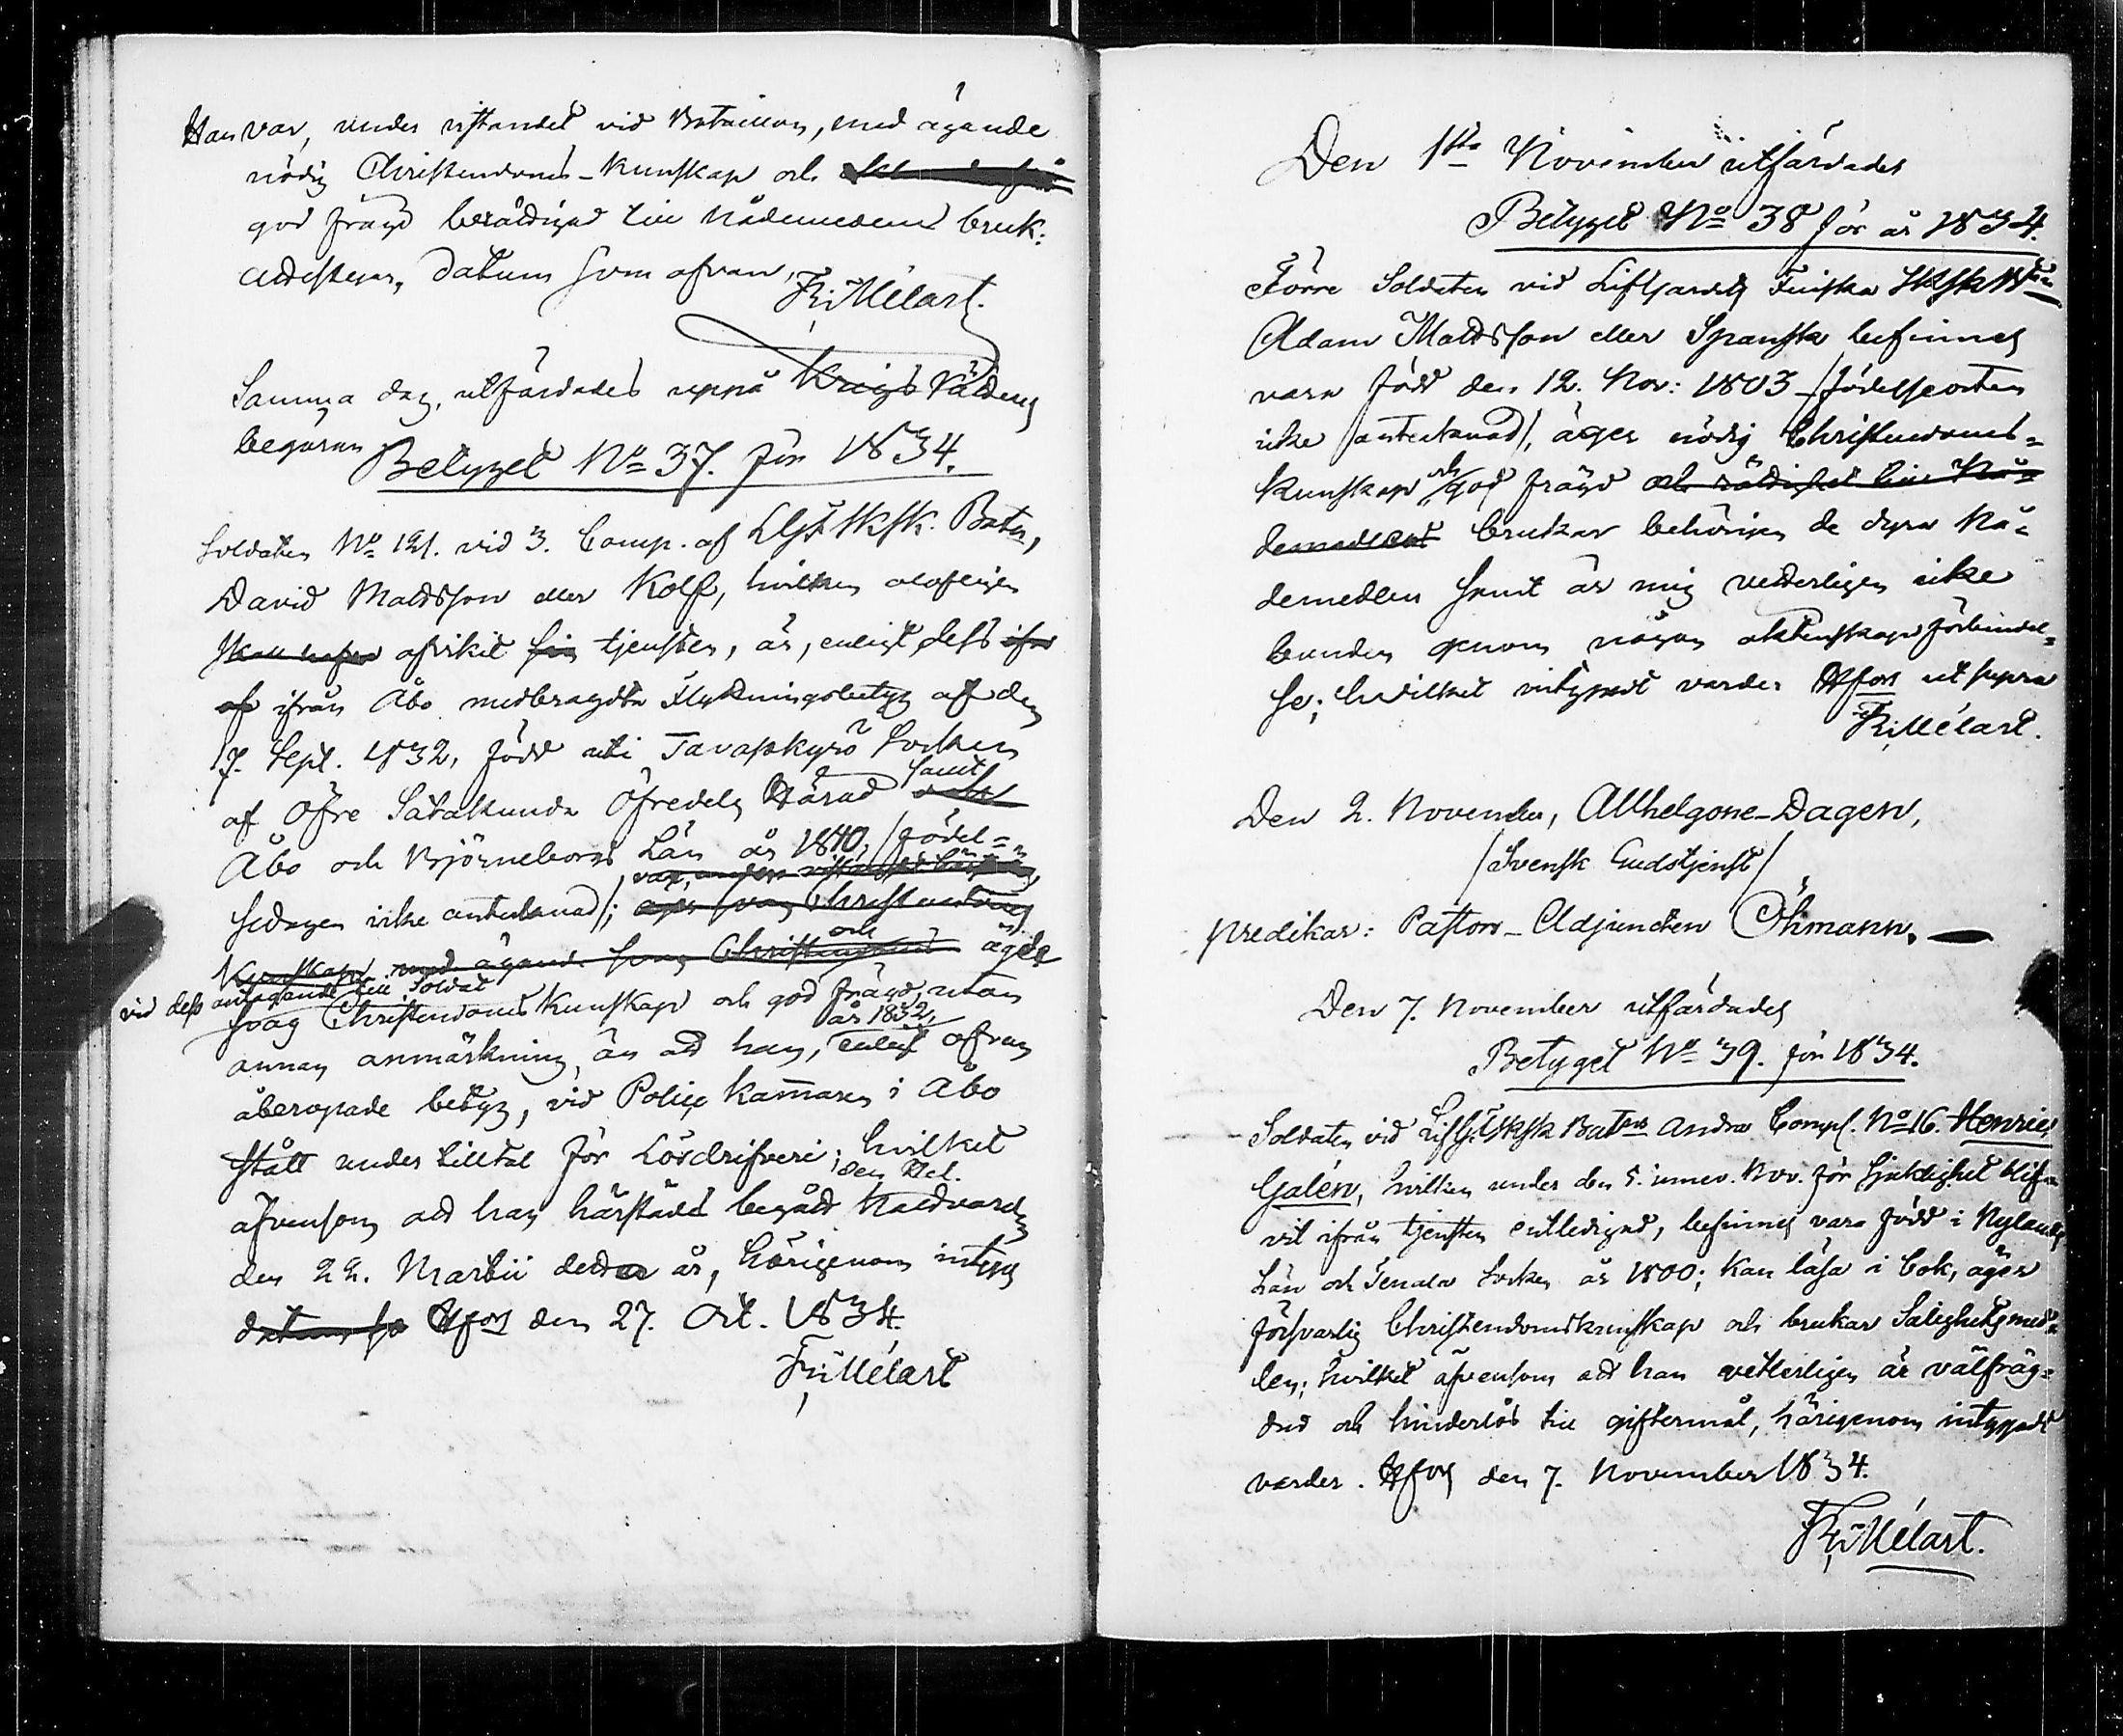 Han var, under vistandet vid Bataillon, med ägande
nödig Christendoms-kunskap och
god frägd berättigad till Nådemedlens bruk;
attesteras, Datum som ofvan,
Fr: Mélart.
Samma dag, utfärdades uppå Krigs Rättens
begäran
Betyget No 37. för 1834.
Soldaten No 121. vid 3. Comp. af LGF SkSk. Batn,
David Mattsson eller Kolf, hvilken olofligen
skall hafva afvikit sin tjensten, är, enligt dess ifrån
af ifrån Åbo medbragdta Flyttningsbetyg af den
17. Sept. 1832, född uti Tavastkyrö Socken
samt
af Öfre Satakunda Öfredels Härad och
Åbo och Björneborgs Län år 1810, /födel=
var, under vistandet härstädes,
sedagen icke antecknad/; äger svag Christendoms
och
Kunskap med ägande svag Christendoms ägde
vid dess antagande till Soldat
svag Christendoms kunskap och god frägd, utan
år 1832,
annan anmärkning, än att han, enligt ofvan
åberopade betyg, vid Police Kam̄aren i Åbo
stått under tilltal för Lösdrifveri; hvilket
den Hel.
äfvensom att han härstädes begått Nattvarden
den 22. Martii detta år, härigenom intygas
datum so Hfors den 27. Oct. 1834.
Fr: Mélart
Den 1sta November utfärdades
Betyget No 38 för år 1834.
Förre Soldaten vid Lifgardets Finska SkSk Btn
Adam Mattsson eller Spansk befinnes
vara född den 12. Nov: 1803 /födelseorten
icke antecknad/, äger nödig Christendoms=
och
kunskap, god frägd och rättighet till Nå=
demedlens brukar behörigen de dyra Nå=
demedlen samt är mig vetterligen icke
bunden genom någon äktenskapsförbindel=
se; hvilket intygadt varder Hfors ut supra
Fr: Mélart.
Den 2. November, Allhelgone-Dagen,
/Svensk Gudstjenst/
predikar: Pastors-Adjuncten Öhmann.
Den 7. November utfärdades
Betyget No 39. för 1834.
Soldaten vid LifG. F SkSk Batns Andra Comp. No 16. Henric
Galén, hvilken under den 5. innev. Nov. för sjuklighet blif=
vit ifrån tjensten entledigad, befinnes vara född i Nylands
Län och Tenala Socken år 1800; kan läsa i bok, äger
försvarlig Christendomskunskap och brukar Salighetsmed=
len; hvilket äfvensom att han vetterligen är välfräg=
dad och hinderlös till giftermål, härigenom intygadt
varder. Hfors den 7. November 1834.
Fr: Mélart.